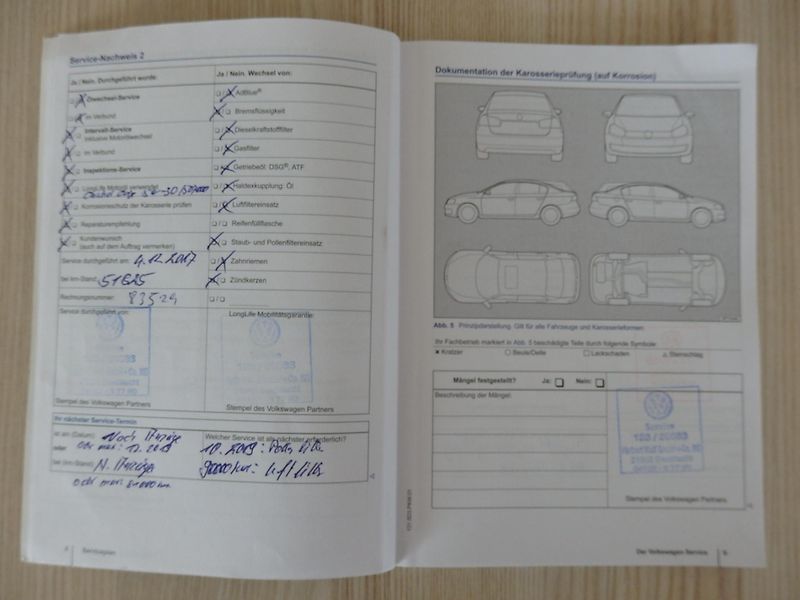 Service-Nachweis 2
Ja / Nein. Durchgeführt wurde:
Ölwechsel-Service
im Verbund
Intervall-Service
inklusive Motorölwechsel
im Verbund
Inspektions-Service
LongLife Motoröl verwendet
Korrosionsschutz der Karosserie prüfen
Reparaturempfehlung
Kundenwunsch
(auch auf dem Auftrag vermerken)
Service durchgeführt am: 4.12.2017
bei km-Stand: 51625
Rechnungsnummer: 83524
Service durchgeführt von:
Stempel des Volkswagen Partners
Ja / Nein. Wechsel von:
AdBlue®
Bremsflüssigkeit
Dieselkraftstofffilter
Gasfilter
Getriebeöl: DSG®, ATF
Haldexkupplung: Öl
Luftfiltereinsatz
Reifenfüllflasche
Staub- und Pollenfiltereinsatz
Zahnriemen
Zündkerzen
LongLife Mobilitätsgarantie:
Stempel des Volkswagen Partners
Ihr nächster Service-Termin
ist am (Datum): Nach Anzeige
oder oder max: 12.2019
bei (km-Stand): N. Anzeige
oder max:
Welcher Service ist als nächster erforderlich?
10.2019: Pollen Filter
90000km: Luftfilter
4 Serviceplan
Dokumentation der Karosserieprüfung (auf Korrosion)
Abb. 5 Prinzipdarstellung. Gilt für alle Fahrzeuge und Karosserieformen.
Ihr Fachbetrieb markiert in Abb. 5 beschädigte Teile durch folgende Symbole:
x Kratzer ○ Beule/Delle □ Lackschaden △ Steinschlag
Mängel festgestellt? Ja: Nein:
Beschreibung der Mängel:
Service
Stempel des Volkswagen Partners
Der Volkswagen Service 5